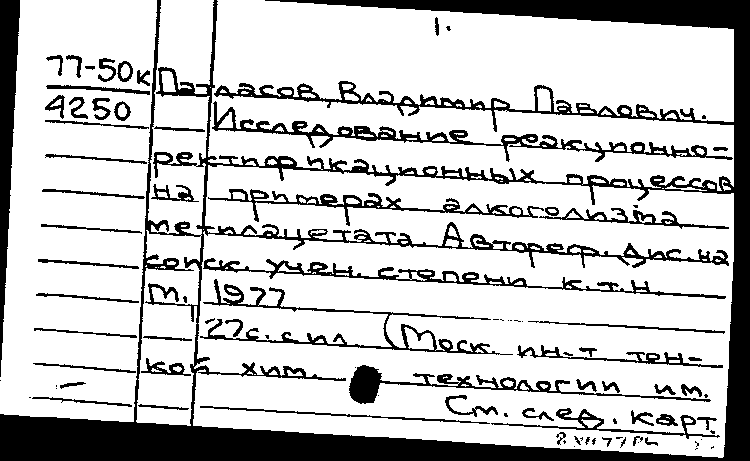 1.
77-50к
4250
Паздасов, Владимир Павлович.
Исследование реакционно-
ректификационных процессов
на примерах алкоголизма
метилацетата. Автореф. дис. на
соиск. учен. степени к.т.н.
М. 1977.
27с. с ил. (Моск. ин-т тон-
кой хим. технологии им.
См. след. карт.